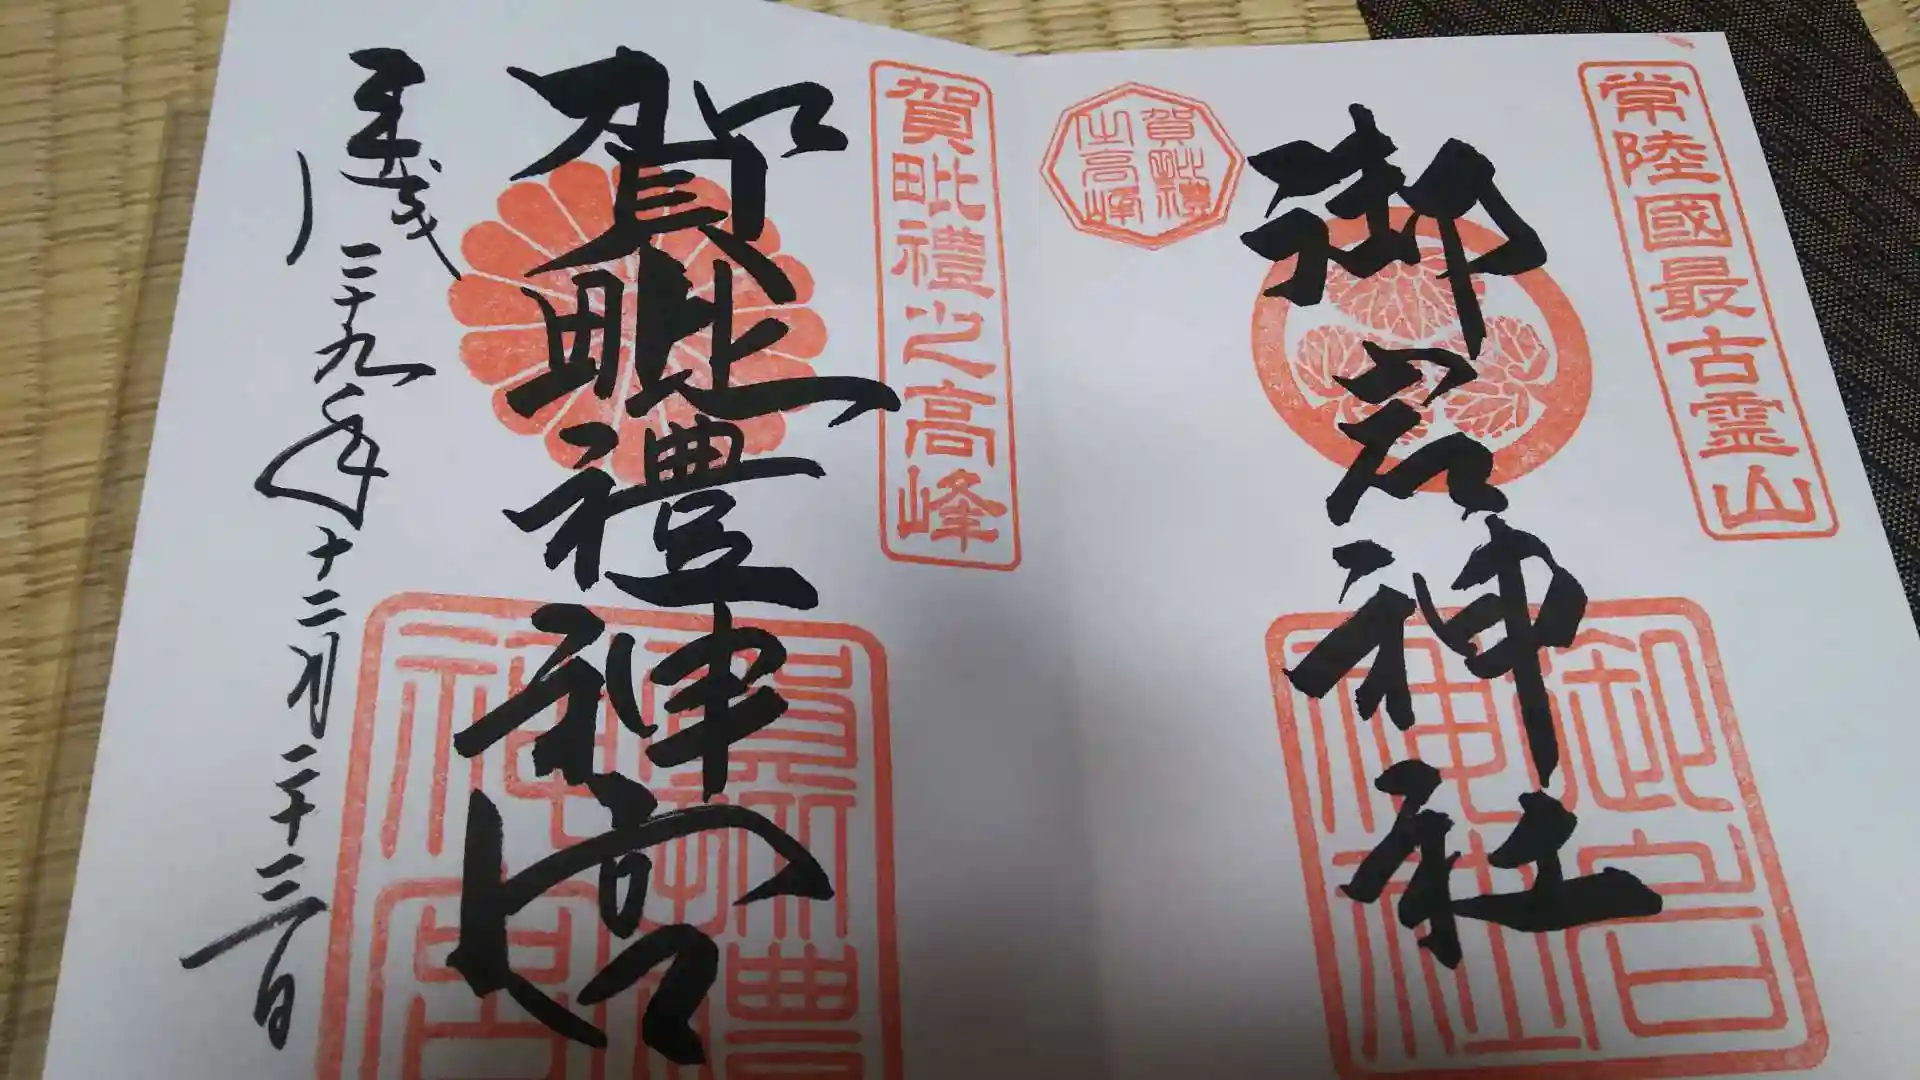 常陸國最古霊山
御岩神社
御岩
神社
賀毗禮
之高峰
賀毗禮之高峰
賀毗禮神宮
賀毗禮
神宮
平成二十九年十二月二十三日